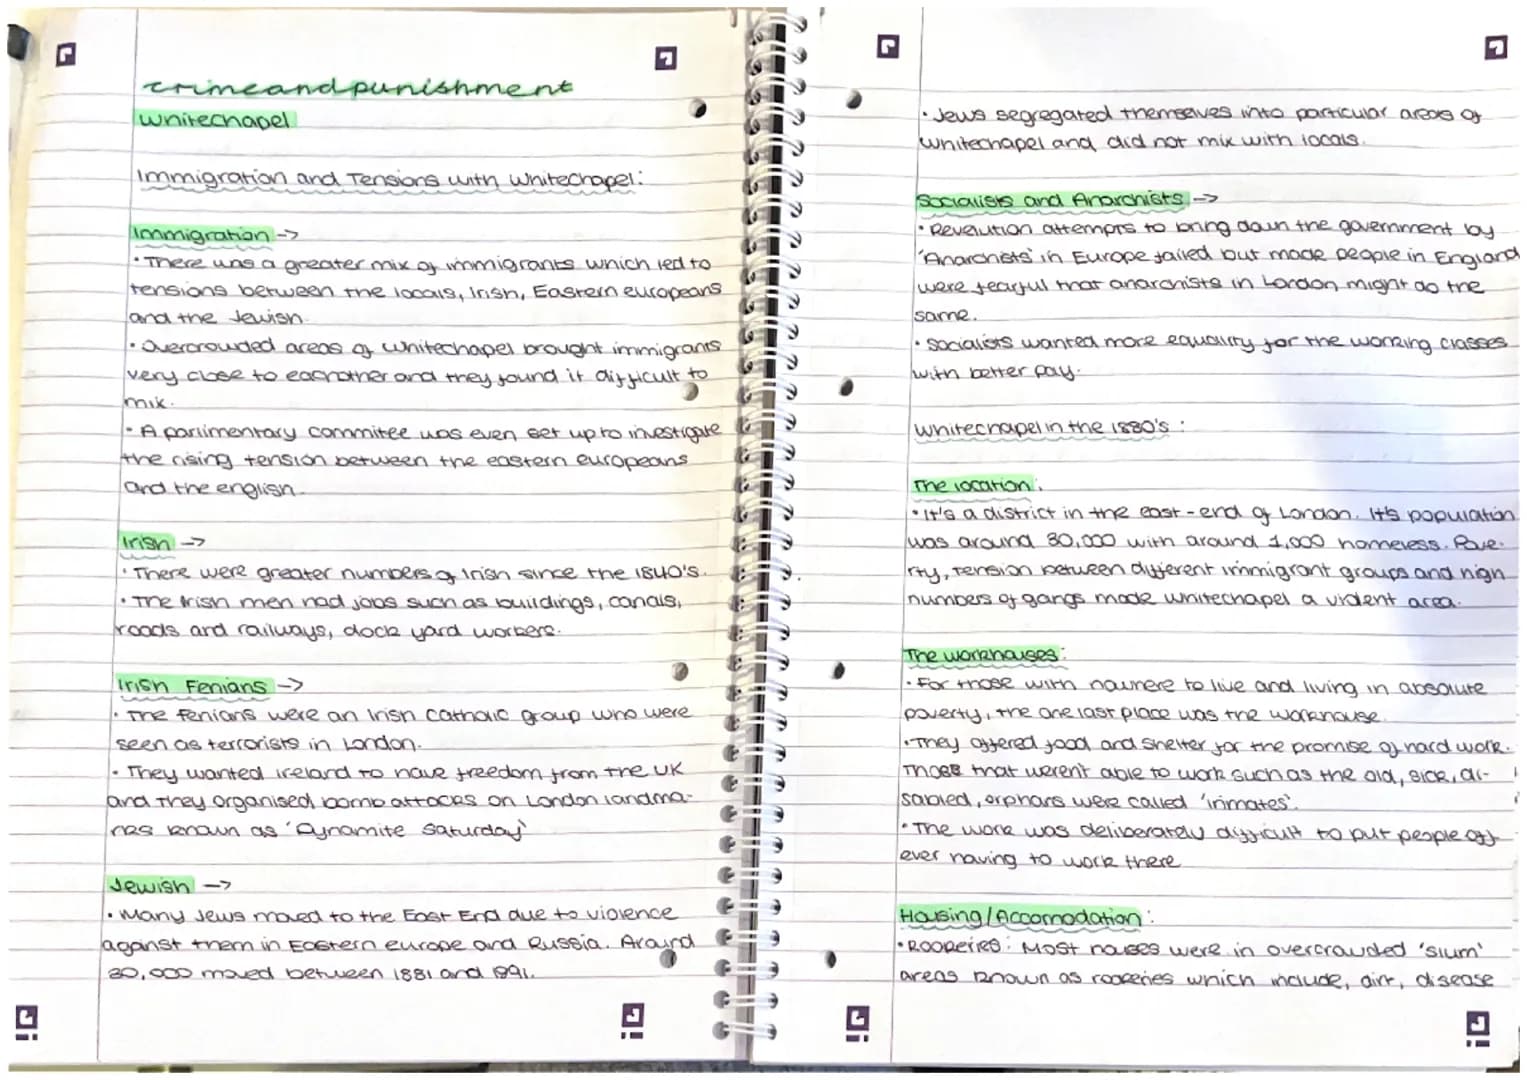 crimeandpunishment
Whitechapel
Immigration and Tensions with Whitechapel:
Immigration ->
• There was a greater mix of immigrants which led to
tensions between the locals, Irish, Eastern europeans
and the Jewish.
• Overcrowded areas of Whitechapel brought immigrants
very close to eachother and they found it difficult to
mix.
• A parlimentary commitee was even set up to investigate
the rising tension between the eastern europeans
and the english.
Irish ->
• There were greater numbers of Irish since the 1840's.
• The Irish men had jobs such as buildings, canals,
roads and railways, dock yard workers.
Irish Fenians ->
• The fenians were an Irish Catholic group who were
seen as terrorists in London.
• They wanted ireland to have freedom from the UK
and they organised bomb attacks on London landma-
rks known as 'Dynamite Saturday'
Jewish ->
• Many Jews moved to the East End due to violence
against them in Eastern europe and Russia. Around
30,000 moved between 1881 and 1891.
• Jews segregated themselves into particular areas of
Whitechapel and did not mix with locals.
Socialists and Anarchists ->
• Revolution attempts to bring down the government by
'Anarchists' in Europe failed but made people in England
were fearful that anarchists in London might do the
same.
• Socialists wanted more equality for the working classes
with better pay.
Whitechapel in the 1880's :
The location:
• It's a district in the east-end of London. It's population
was around 30,000 with around 1,000 homeless. Pove-
rty, tension between different immigrant groups and high
numbers of gangs made whitechapel a violent area.
The workhouses:
• For those with nowhere to live and living in absolute
poverty, the one last place was the workhouse.
• They offered food and shelter for the promise of hard work.
Those that weren't able to work such as the old, sick, di-
sabled, orphans were called 'inmates'.
• The work was deliberately difficult to put people off
ever having to work there
Housing/Accomodation:
• Rookeries: Most houses were in overcrowded 'slum'
areas known as rookeries which include, dirt, disease